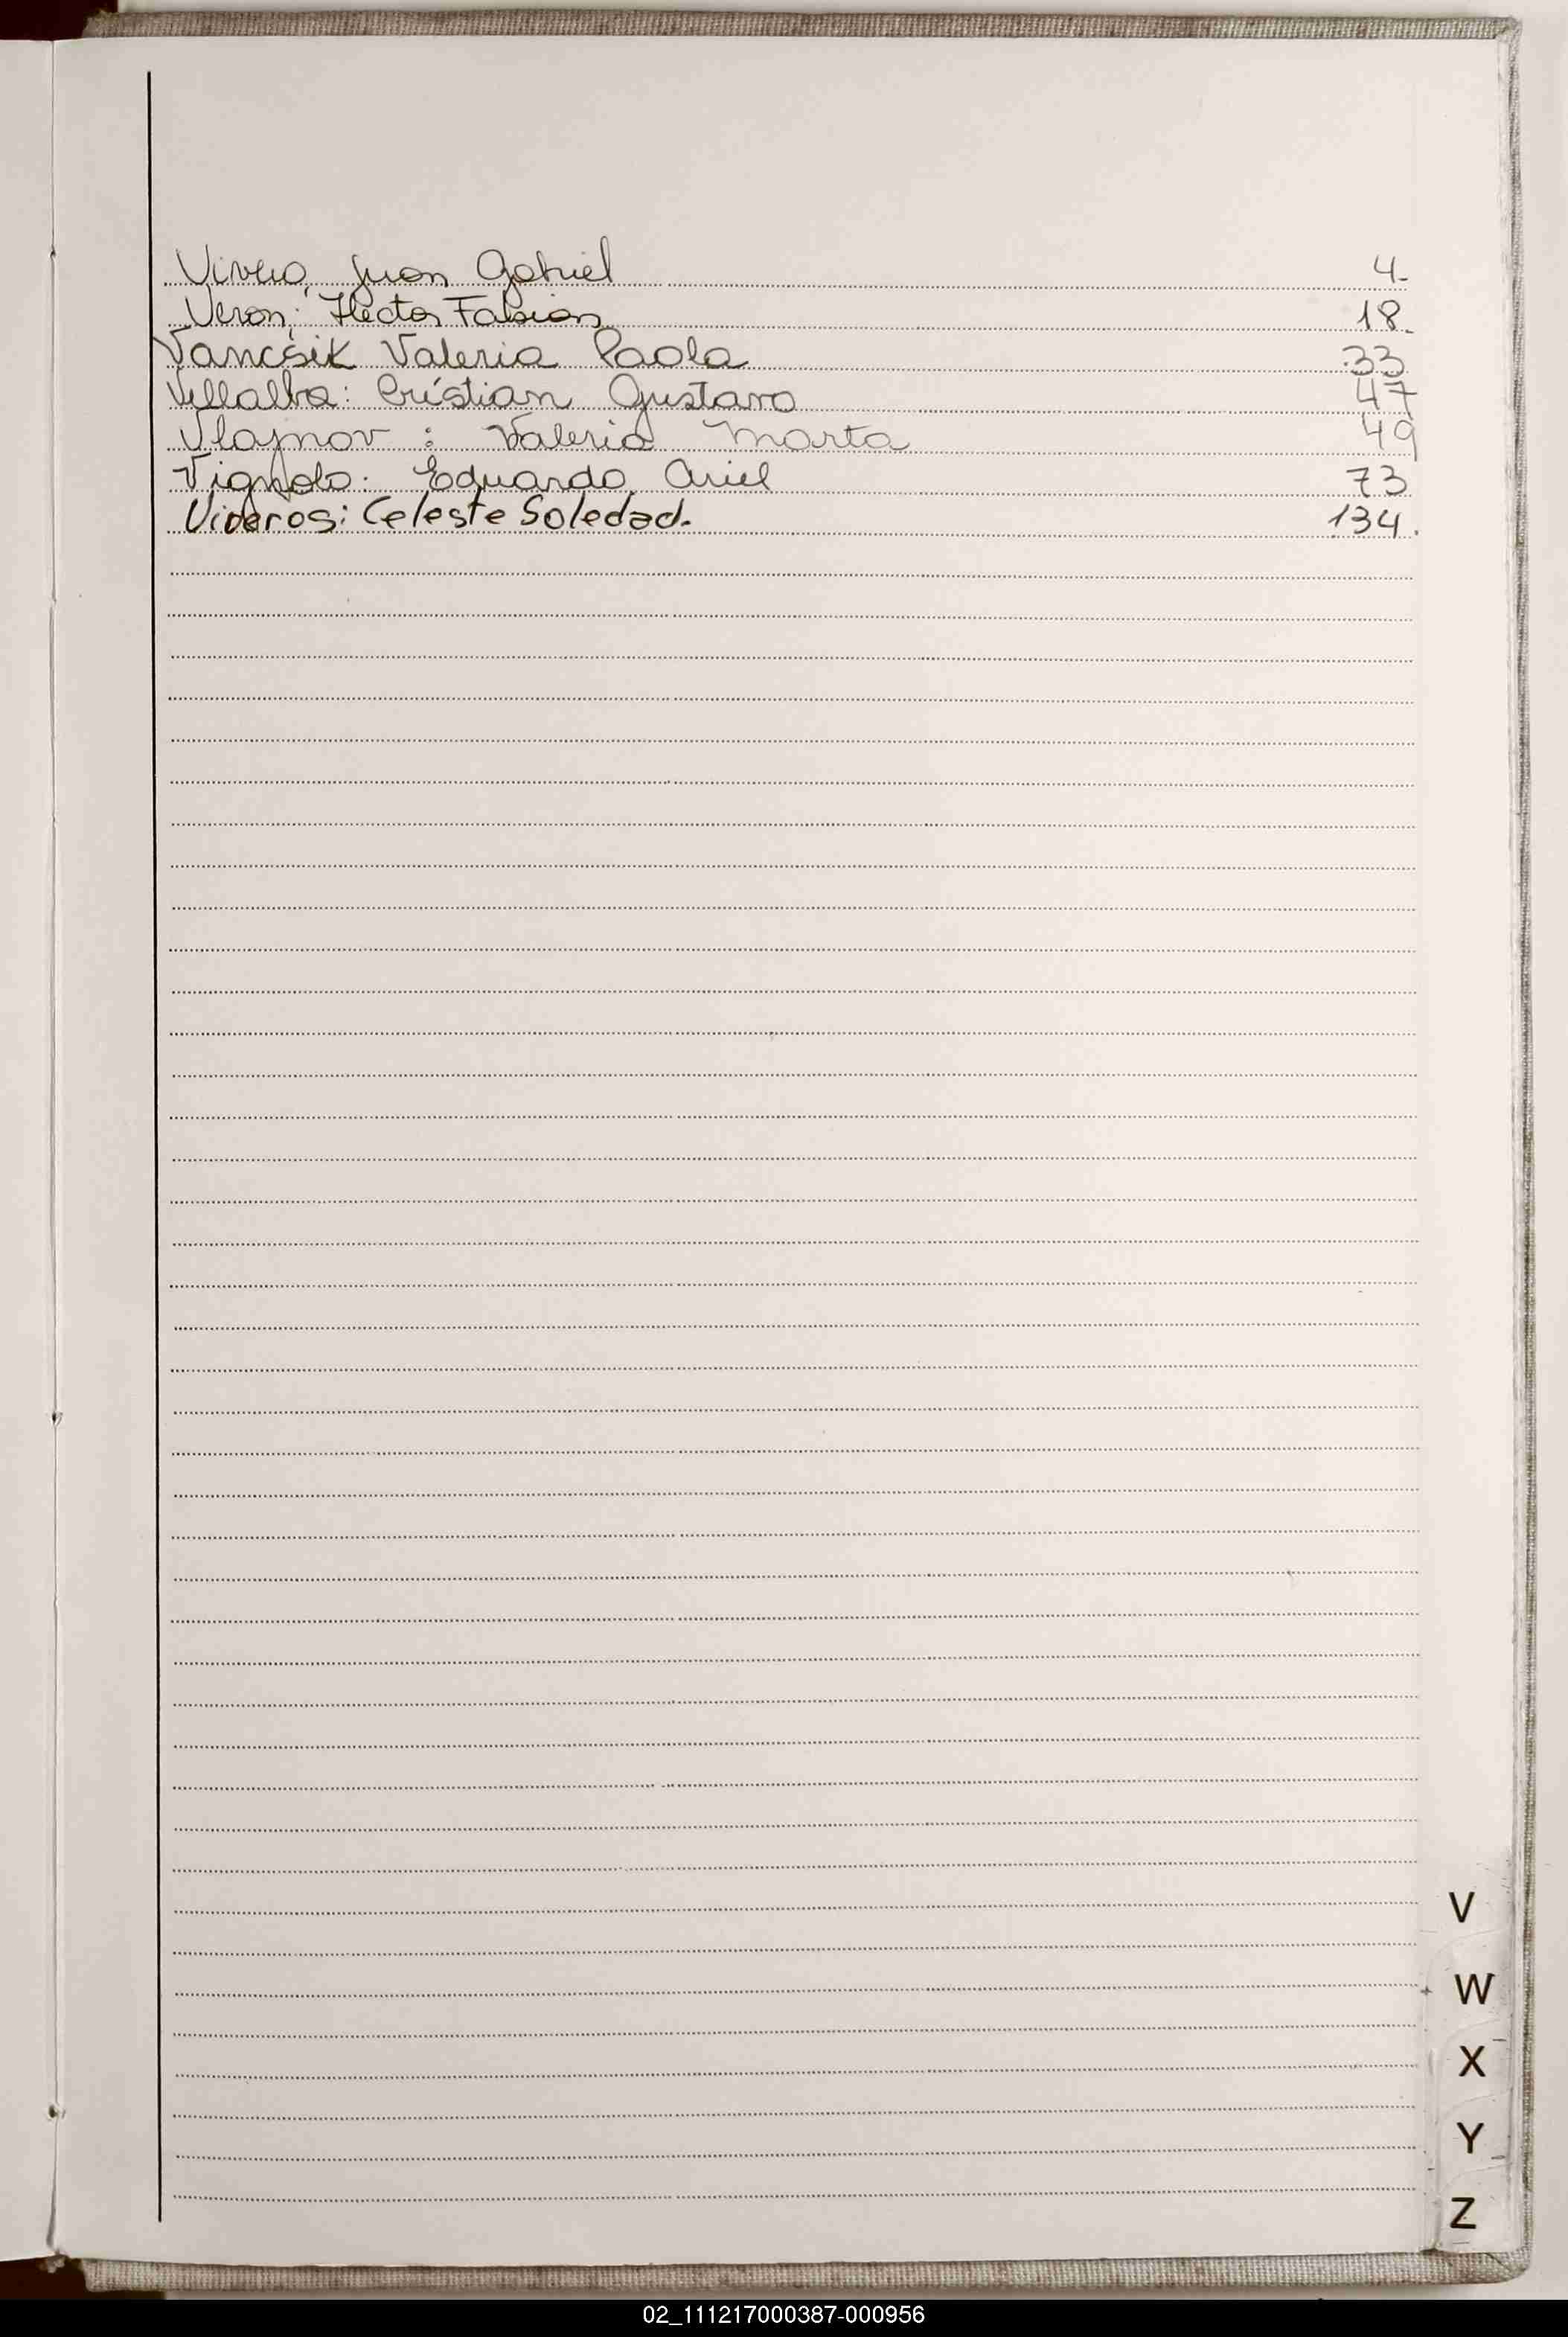 Vivero, Juan Gabriel 4.
Veron: Hector Fabian 18.
Vancsik Valeria Paola 33
Villalba: Cristian Gustavo 47
Vlajnov : Valeria Marta 49
Vignolo: Eduardo Ariel 73
Viveros: Celeste Soledad. 134.
V
W
X
Y
Z
02_111217000387-000956